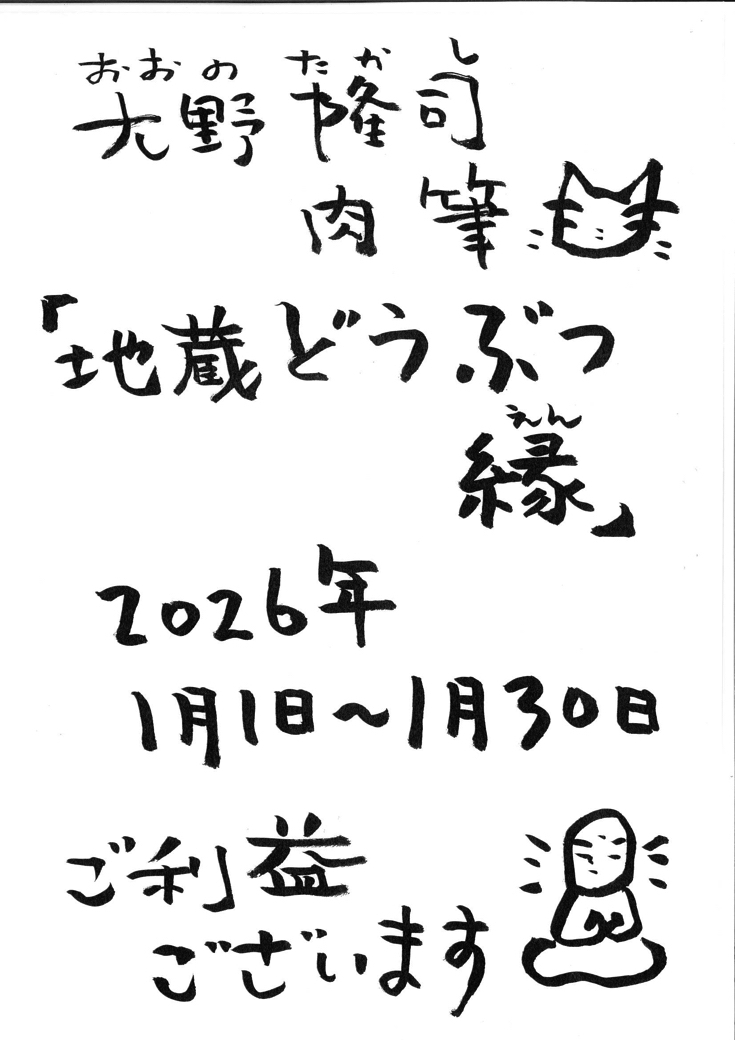 おおの たかし
大野 隆司
肉筆
「地蔵どうぶつ
えん
縁」
2026年
1月1日〜1月30日
ご利益
ございます